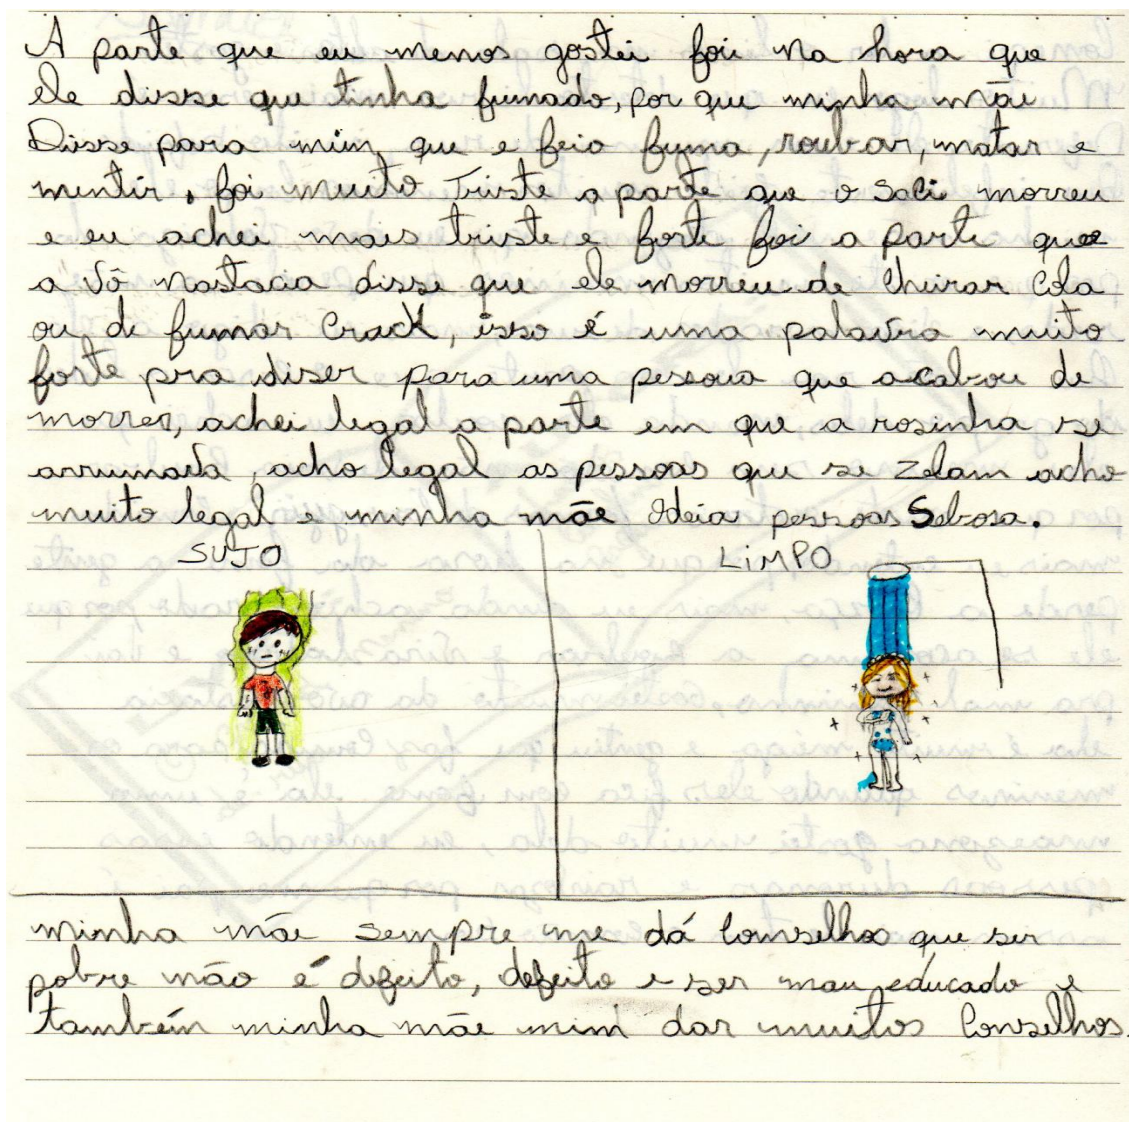 A parte que eu menos gostei foi na hora que
ele disse que tinha fumado, por que minha mãe
Disse para mim que e feio fuma, roubar, matar e
mentir. foi muito Triste a parte que o Saci morreu
e eu achei mais triste e forte foi a parte que
a Vó nastacia disse que ele morreu de Cheirar Cola
ou de fumar Crack, isso é uma palavra muito
forte pra diser para uma pessoa que acabou de
morrer, achei legal a parte em que a rosinha se
arrumava, acho legal as pessoas que se zelam acho
muito legal e minha mãe Odeia pessoas Sebosa.
SUJO LiMPO
minha mãe sempre me dá Conselhos que ser
pobre não é defeito, defeito e ser mau educado e
também minha mãe mim dar muitos Conselhos.